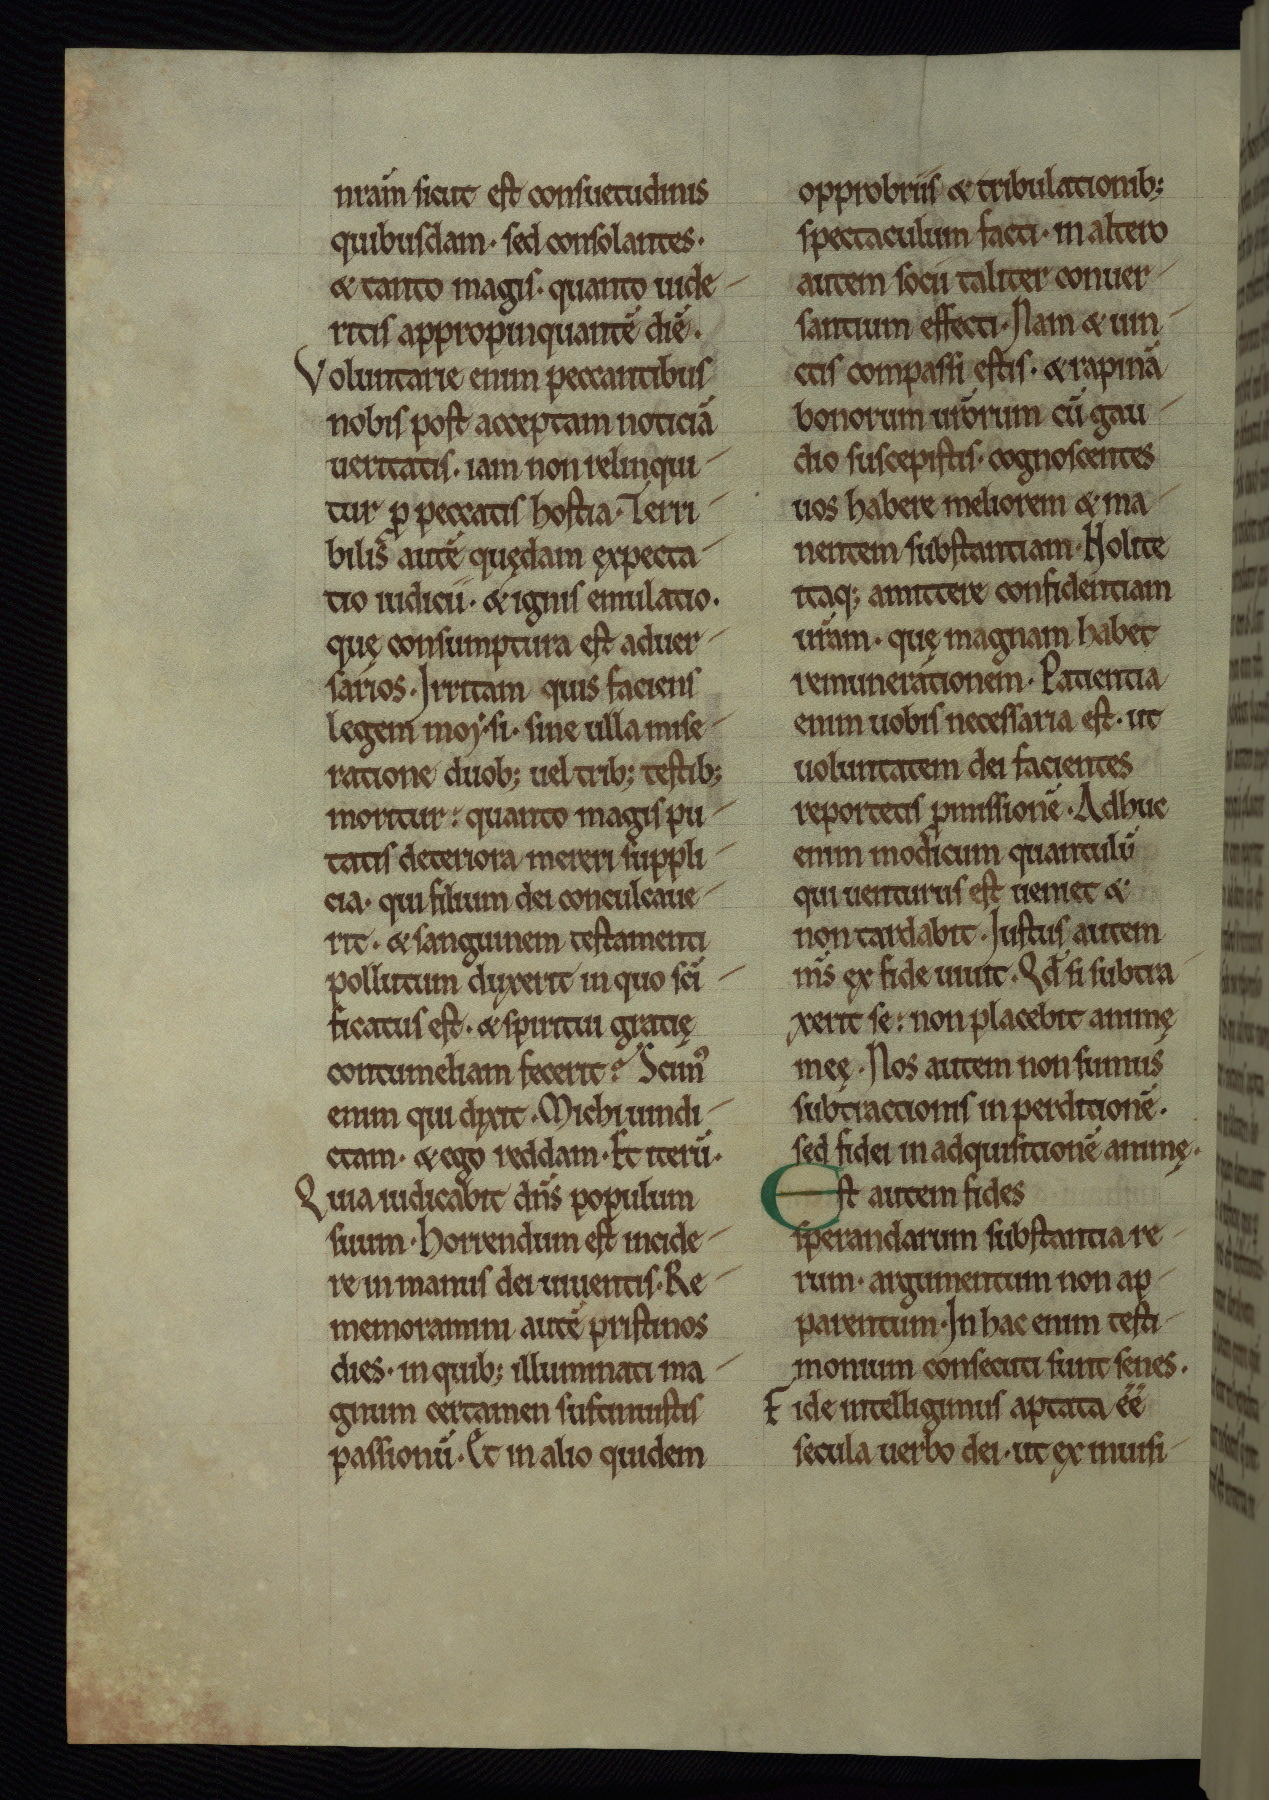 nr̄am sicut est consuetudinis
quibusdam · sed consolantes ·
& tanto magis · quanto uide-
ritis appropinquantē diē .
Voluntarie enim peccantibus
nobis post acceptam noticiā
ueritatis · iam non relinqui-
tur ꝓ peccatis hostia · Terri-
bilis autē quędam expecta-
tio iudicii · & ignis emulatio ·
quę consumptura est aduer-
sarios · Irritam quis faciens
legem moy·si · sine ulla mise-
ratione duob; uel trib; testib;
moritur : quanto magis pu-
tatis deteriora mereri suppli-
cia · qui filium dei conculcaue-
rit · & sanguinem testamenti
pollutum duxerit in quo sc̄i-
ficatus est · & spiritui gratię
contumeliam fecerit ? Scimꝰ
enim qui dixit · Michi uindi-
ctam · & ego reddam · Et iterū ·
Quia iudicabit dn̄s populum
suum · Horrendum est incide-
re in manus dei uiuentis · Re-
memoramini autē pristinos
dies · in quib; illuminati ma-
gnum certamen sustinuistis
passionū · Et in alio quidem
opprobriis & tribulationib;
spectaculum facti · in altero
autem socii taliter conuer-
santium effecti · Nam & uin-
ctis compassi estis · & rapinā
bonorum ur̄orum cū gau-
dio suscepistis · cognoscentes
uos habere meliorem & ma-
nentem substantiam · Nolite
itaq; amittere confidentiam
ur̄am · quę magnam habet
remunerationem · Patientia
enim uobis necessaria est · ut
uoluntatem dei facientes
reportetis ꝓmissionē · Adhuc
enim modicum quantulū
qui uenturus est ueniet &
non tardabit · Iustus autem
m̄s ex fide uiuit · Qd̄ si subtra-
xerit se : non placebit animę
meę · Nos autem non sumus
subtractionis in perditionē ·
sed fidei in adquisitionē animę ·
Est autem fides
sperandarum substantia re-
rum · argumentum non ap-
parentum · In hac enim testi-
monium consecuti sunt senes ·
Fide intelligimus aptata ēē
secula uerbo dei · ut ex inuisi-